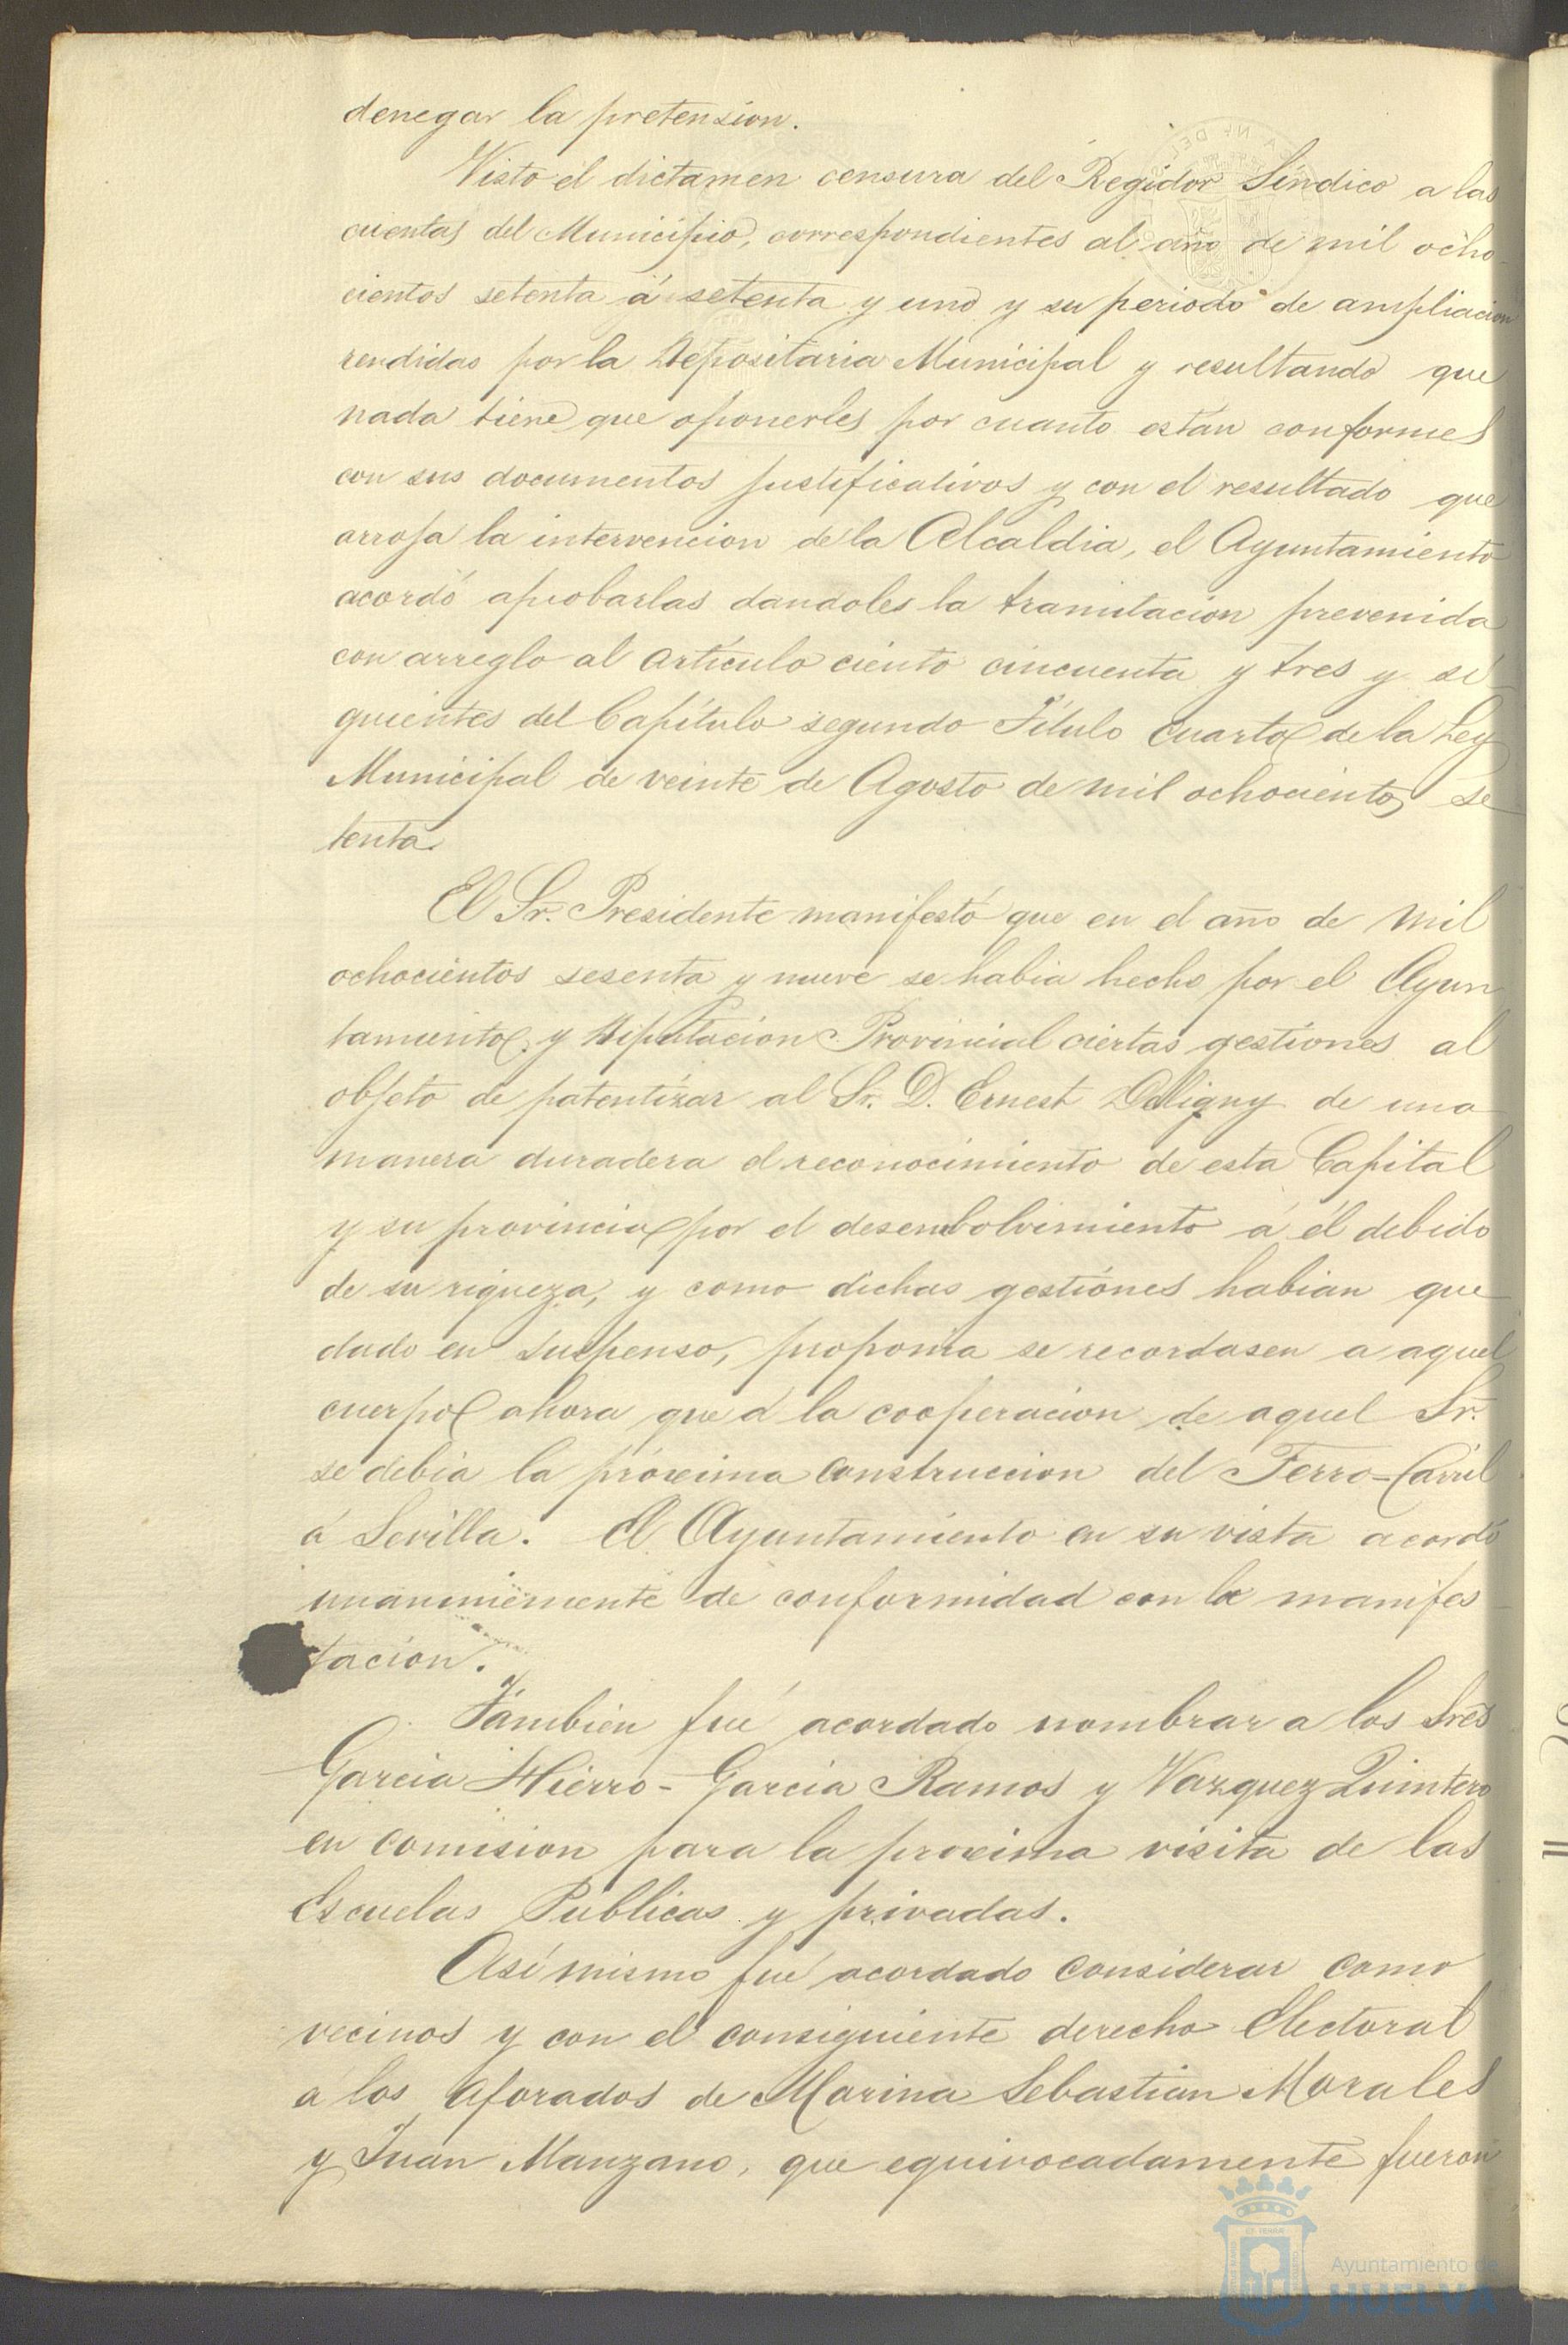 denegar la pretension.
Visto el dictamen censura del Regidor Síndico a las
cuentas del Municipio, correspondientes al año de mil ocho-
cientos setenta á setenta y uno y su periodo de ampliacion
rendidas por la Depositaria Municipal y resultando que
nada tiene que oponerles por cuanto están conformes
con sus documentos justificativos y con el resultado que
arroja la intervencion de la Alcaldia, el Ayuntamiento
acordó aprobarlas dandoles la tramitacion prevenida
con arreglo al artículo ciento cincuenta y tres y si-
guientes del Capítulo segundo Título cuarto de la Ley
Municipal de veinte de Agosto de mil ochocientos se
tenta.
El Sr. Presidente manifestó que en el año de mil
ochocientos sesenta y nueve se habia hecho por el Ayun
tamiento y Diputacion Provincial ciertas gestiones al
objeto de patentizar al Sr. D. Ernest Deligny de una
manera duradera el reconocimiento de esta Capital
y su provincia por el desenbolvimiento á él debido
de su riqueza, y como dichas gestiones habian que
dado en suspenso, proponia se recordasen a aquel
cuerpo ahora que á la cooperacion de aquel Sr.
se debia la próxima construccion del Ferro-Carril
á Sevilla. El Ayuntamiento en su vista acordó
unanimemente de conformidad con la manifes
tacion.
Támbien fué acordado nombrar a los Sres
Garcia Hierro - Garcia Ramos y Vazquez Quintero
en comision para la proxima visita de las
Escuelas Publicas y privadas.
Asímismo fué acordado considerar como
vecinos y con el consiguiente derecho Electoral
a los aforados de Marina Sebastian Morales
y Juan Manzano, que equivocadamente fueron
Ayuntamiento de
HUELVA